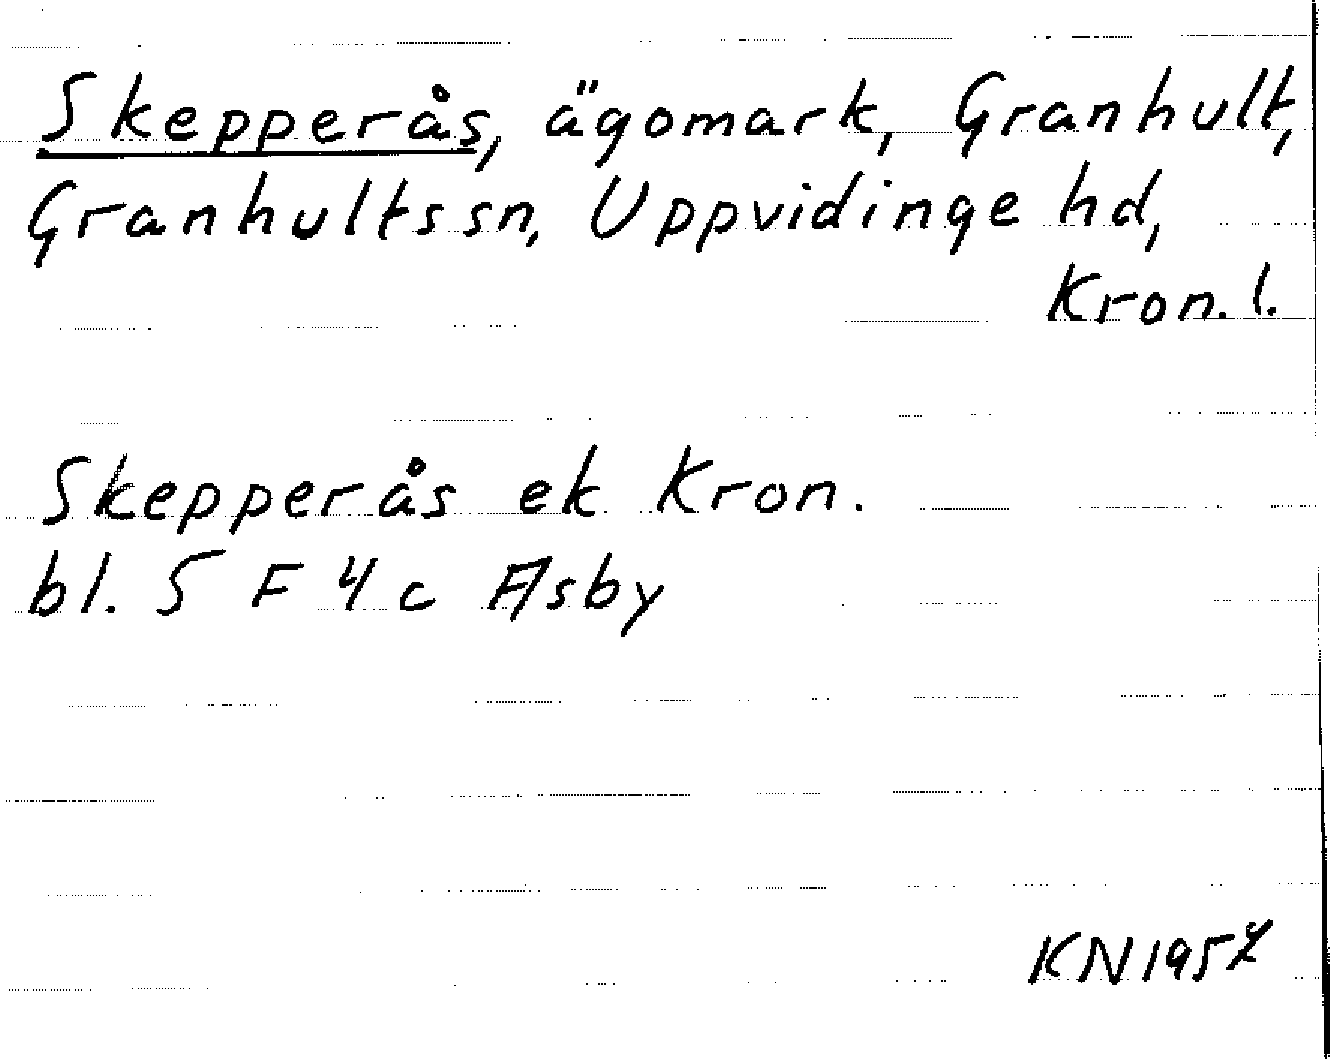 Skepperås, ägomark, Granhult,
Granhults sn, Uppvidinge hd,
Kron. l.
Skepperås ek Kron.
bl. 5 F 4 c Asby
KN 1957